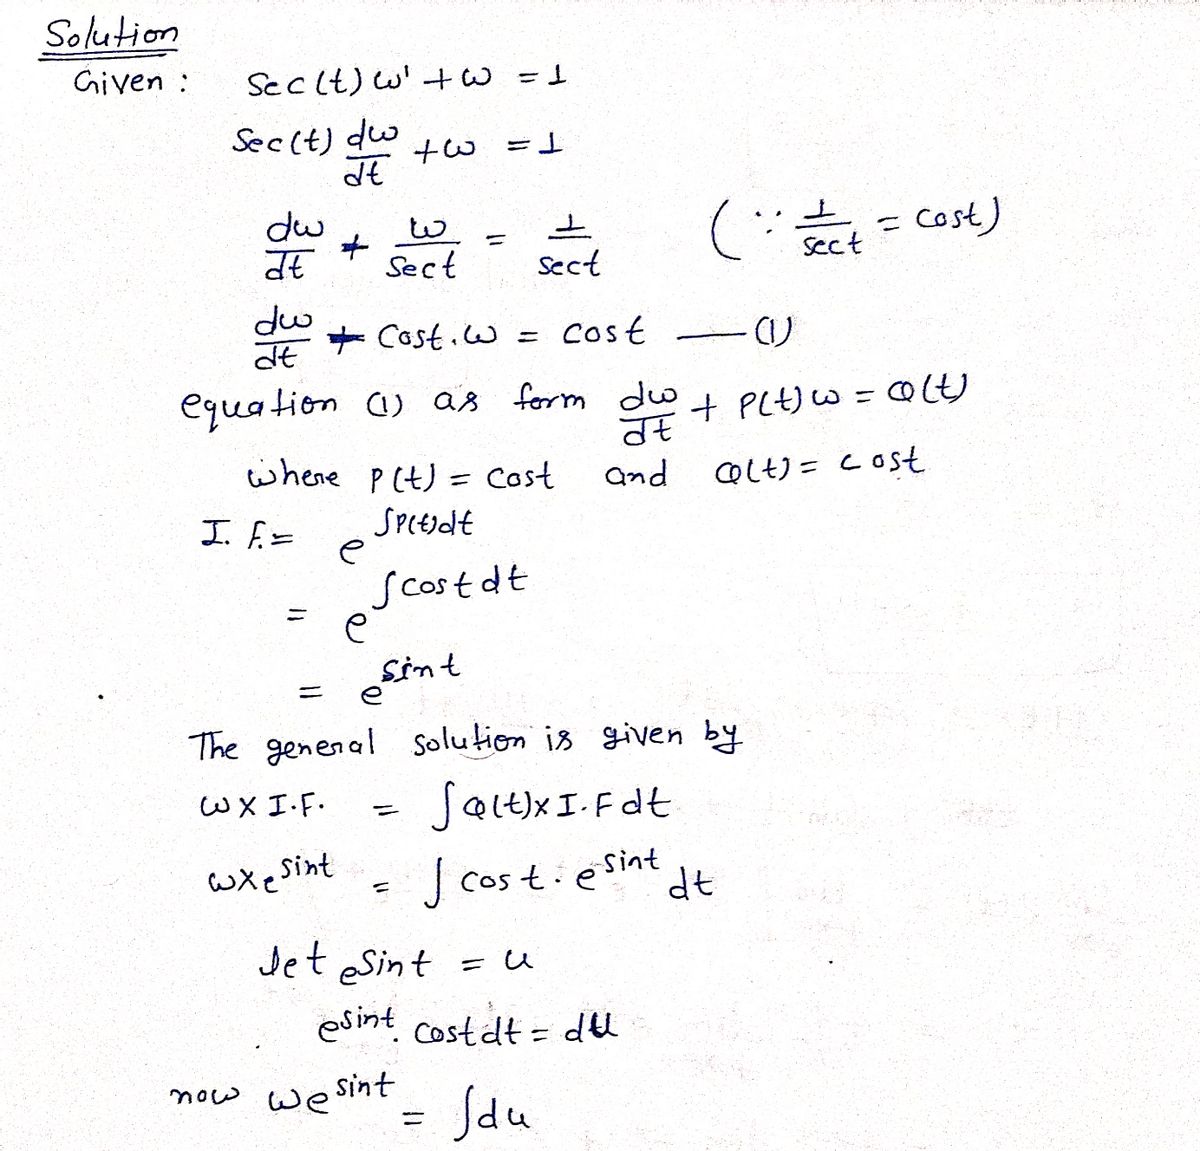 Solution
Given : Sec(t) w' + w = 1
Sec(t) dw/dt + w = 1
dw/dt + w/Sect = 1/Sect (∵ 1/Sect = Cost)
dw/dt + Cost.w = Cost — (1)
equation (1) as form dw/dt + P(t) w = Q(t)
where P(t) = Cost and Q(t) = Cost
I. F. = e^∫P(t)dt
= e^∫cost dt
= e^sint
The general solution is given by
w X I.F. = ∫Q(t) x I.F dt
w x e^sint = ∫ cost. e^sint dt
let e^sint = u
e^sint. Cost dt = du
now we^sint = ∫du